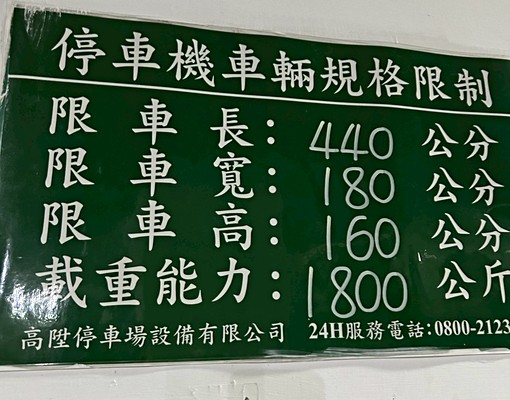 停車機車輛規格限制
限車長：440 公分
限車寬：180 公分
限車高：160 公分
載重能力：1800 公斤
高陞停車場設備有限公司 24H服務電話：0800-2123